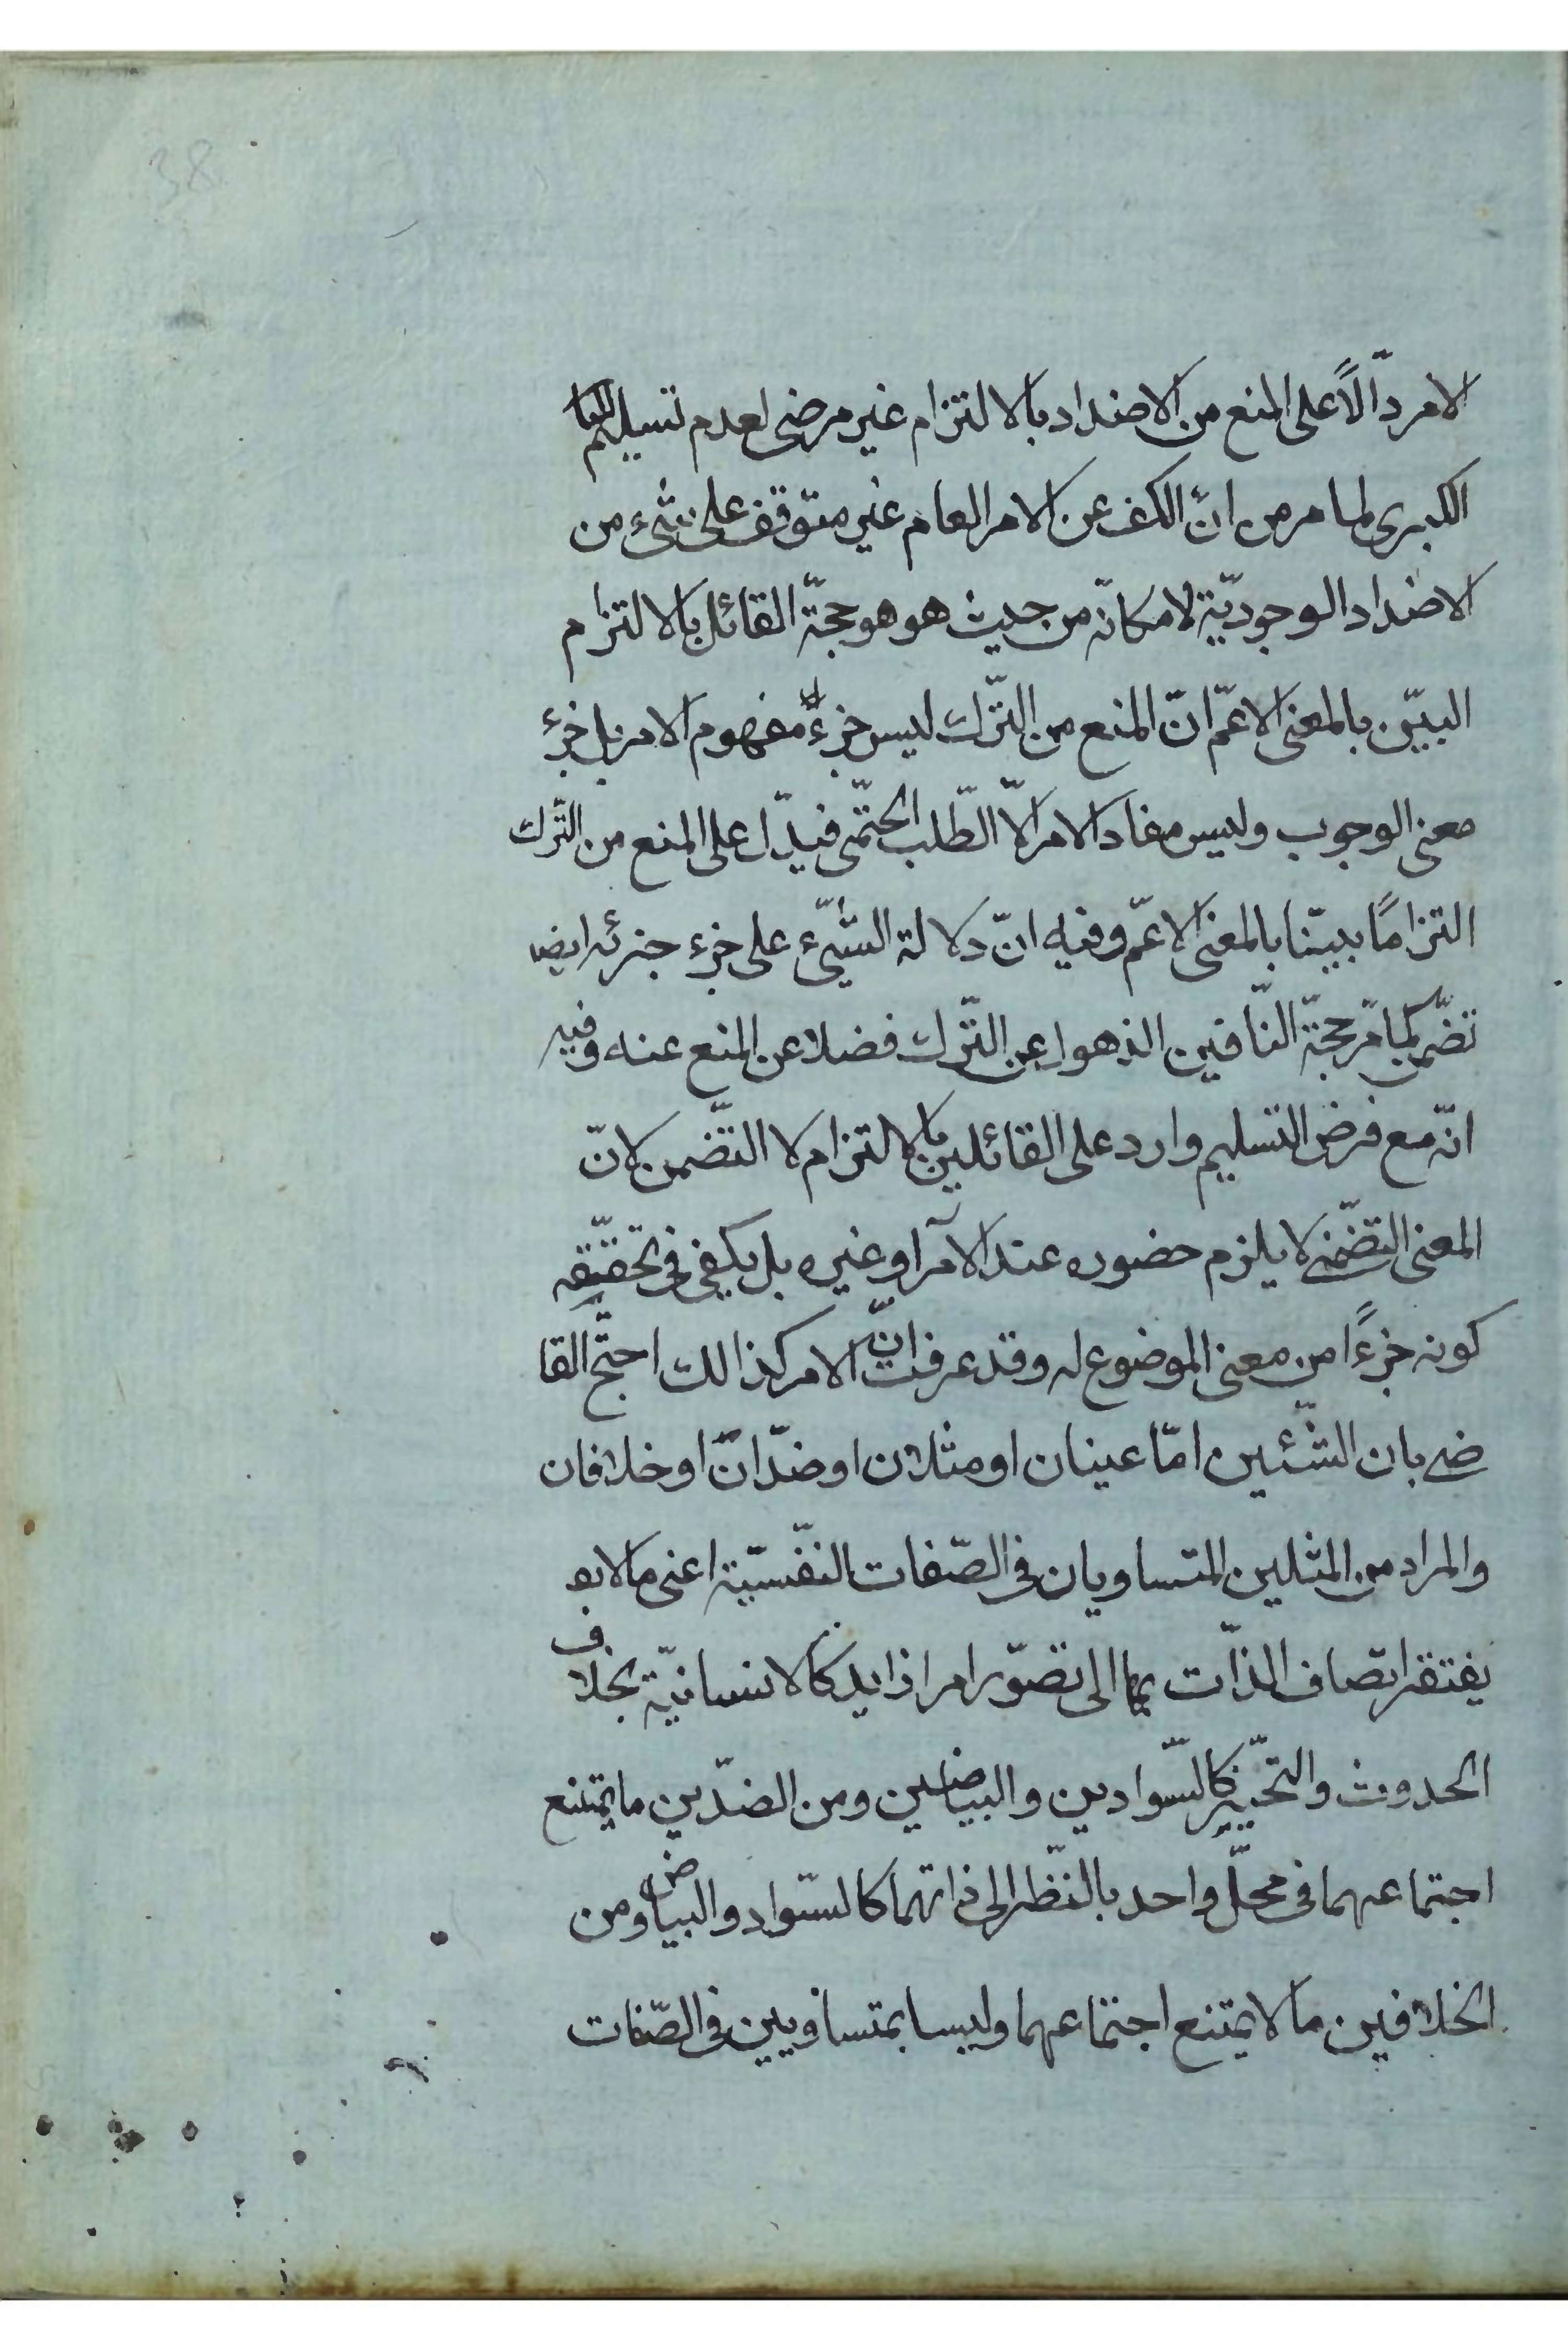 38
الامر دّالاً على المنع من الاضداد بالالتزام غير مرضى لعدم تسليم
الكبرى لما مر من انّ الكف عن الامر العام غير متوقف على شىء من
الاضداد الوجوديّة لامكانه من حيث هو هو حجّة القائل بالالتزام
البيّن بالمعنى الاعمّ انّ المنع من التّرك ليس جزء مفهوم الامر بل جزء
معنى الوجوب وليس مفاد الامر الّا الطّلب الحتمّى فيدّل على المنع من التّرك
التزامًا بيّنا بالمعنى الاعمّ وفيه انّ دلالة الشّىء على جزء جزئه ايضا
تضمّن كما مرّ حجّة النّافين الذهول عن التّرك فضلا عن المنع عنه وفيه
انّه مع فرض التسليم وارد على القائلين بالالتزام لا التضّمن لانّ
المعنى التضّمنى لا يلزم حضوره عند الآمر او غيره بل يكفى فى تحقّقه
كونه جزءًا من معنى الموضوع له وقد عرفت انّ الامر كذالك احتجّ القا
ضى بان الشّئين امّا عينان او مثلان او ضدّان او خلافان
والمراد من المثلين المتساويان فى الصّفات النّفسيّة اعنى ما لا
يفتقر اتصاف الذّات بها الى تصوّر امر زايد كالانسانيّة بخلاف
الحدوث والتحيّز كالسّوادين والبياضين ومن الضدّين ما يمتنع
اجتماعهما فى محلّ واحد بالنّظر الى ذاتهما كالسّواد والبياض ومن
الخلافين ما لا يمتنع اجتماعهما وليسا بمتساويين فى الصّفات